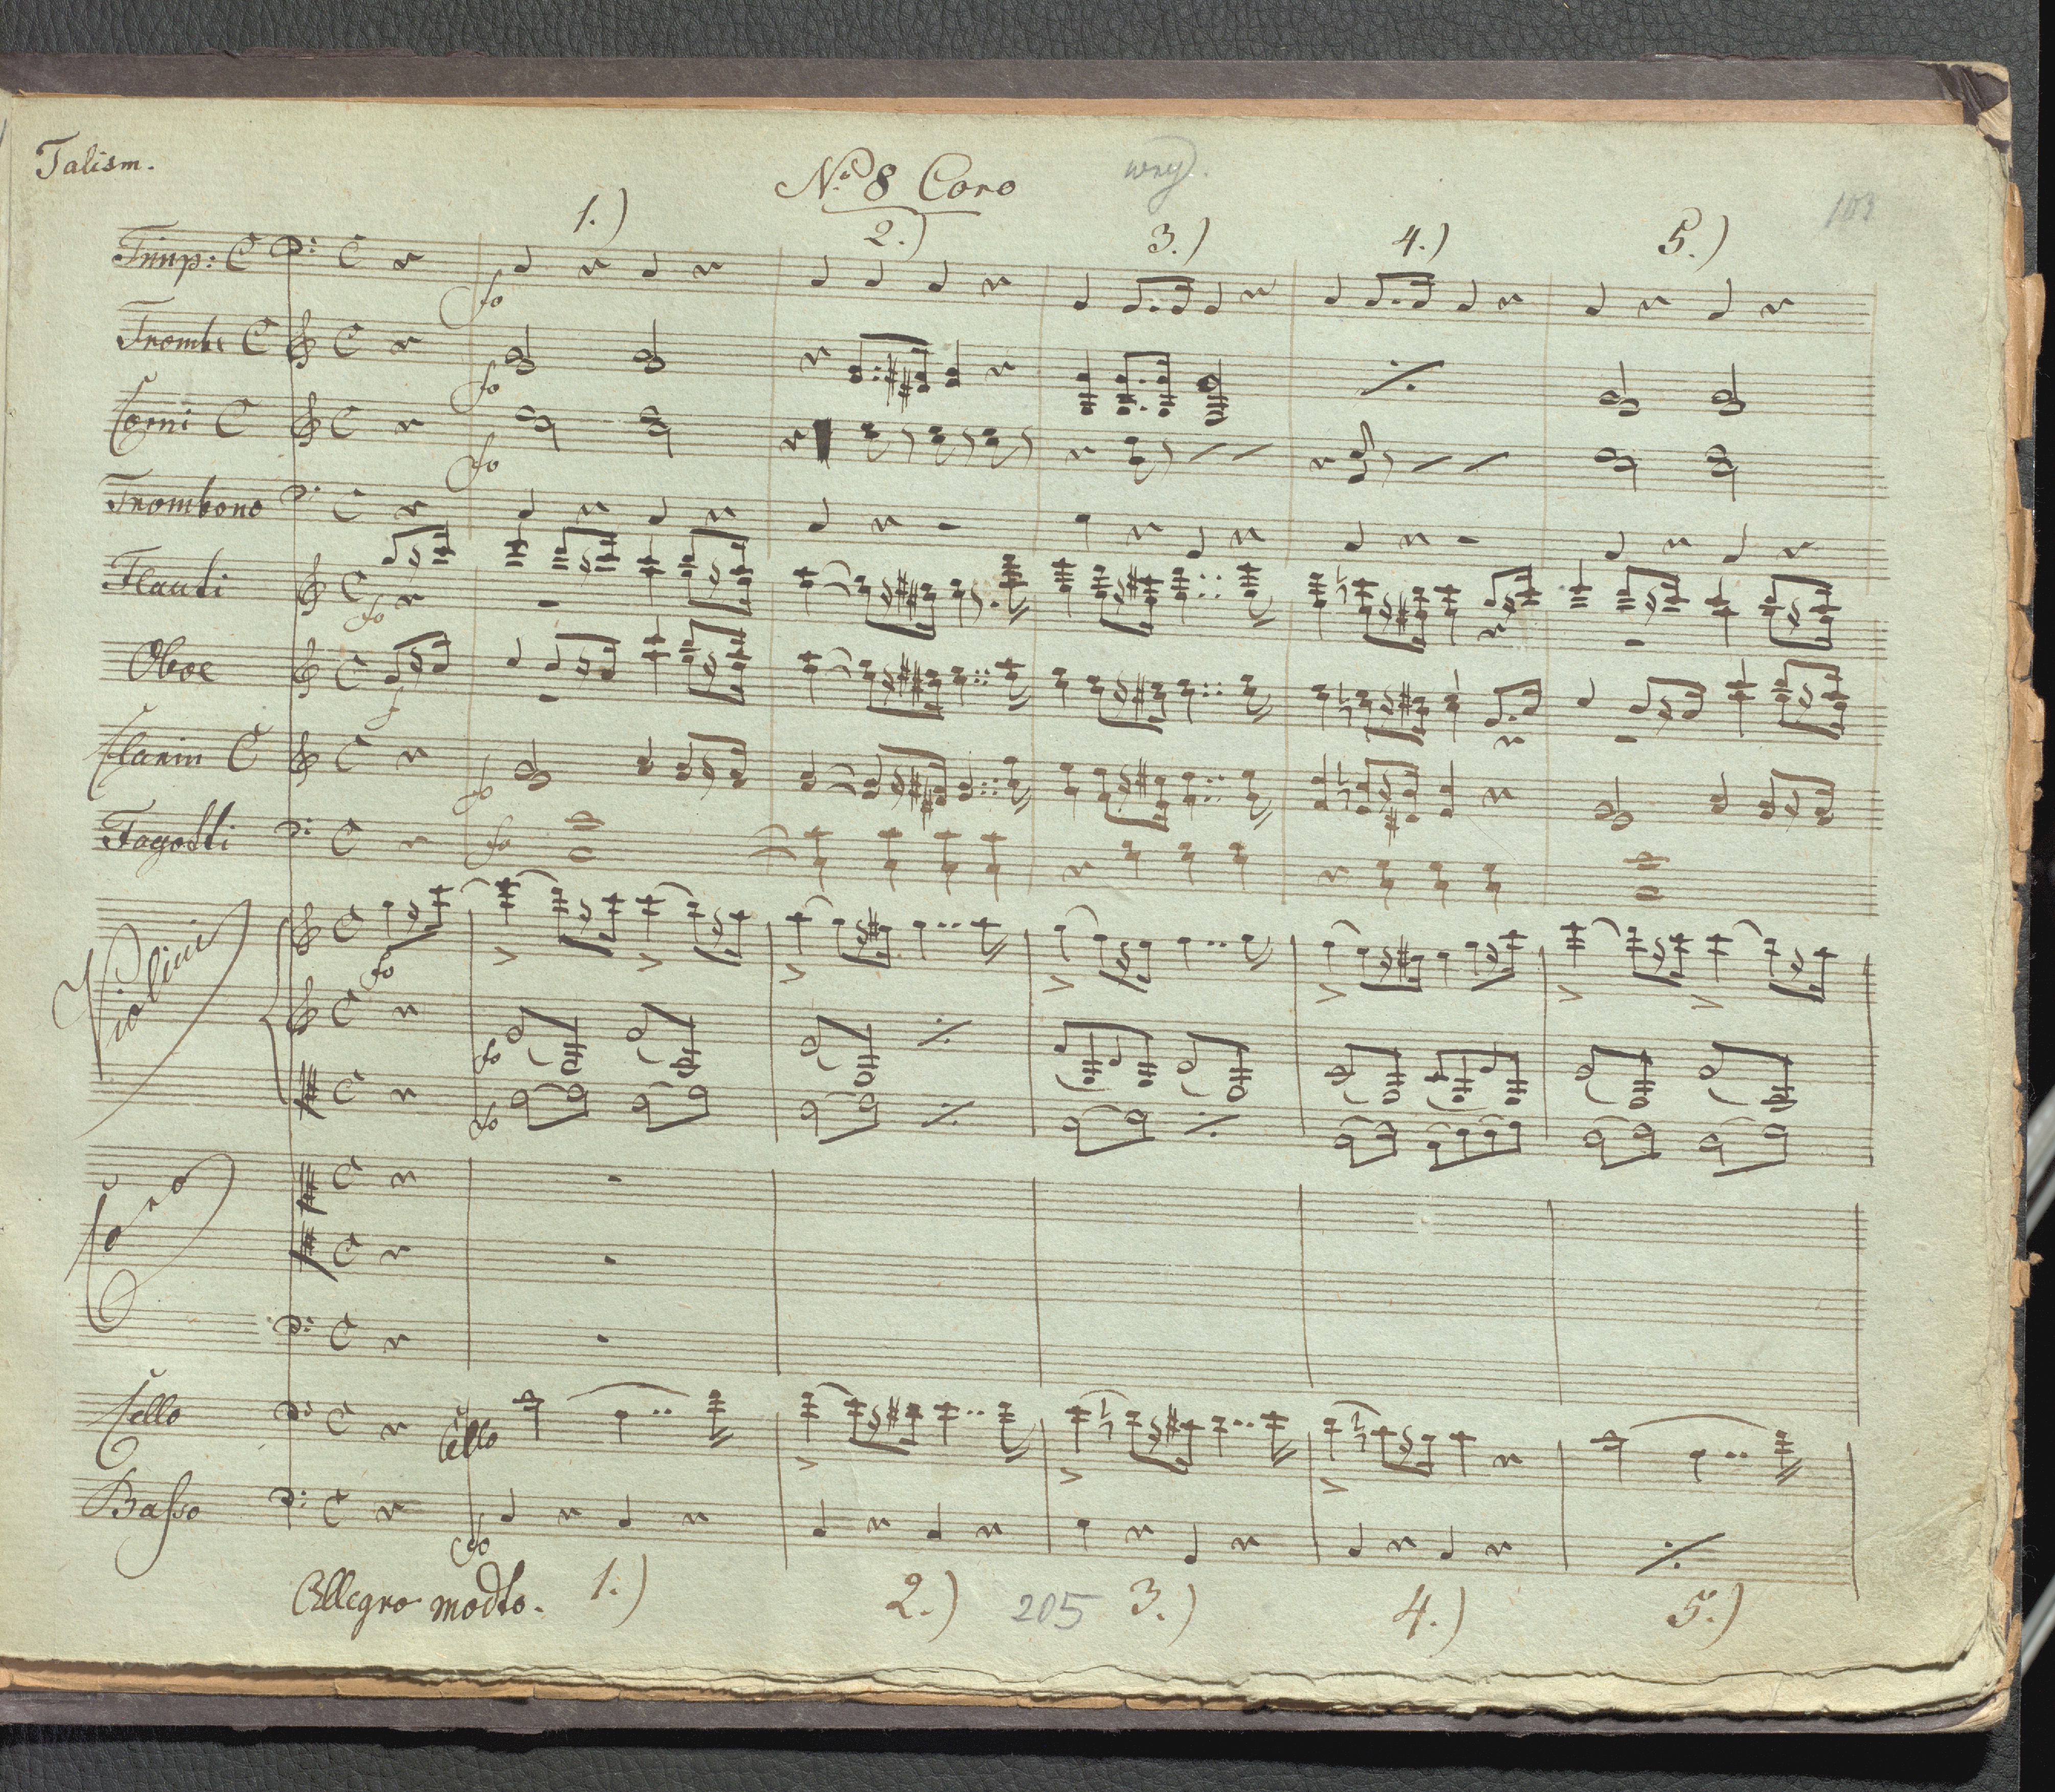 Talism.
No. 8 Coro
103
1.) 2.) 3.) 4.) 5.)
Timp: C
fo
Trombe C
fo
Corni C
fo
Trombono
Flauti
fo
Oboe
f
Clarin C
fo
Fagotti
fo
Violini
fo
fo
fo
Coro
Cello
Cello
Basso
fo
Allegro modto. 1.) 2.) 205 3.) 4.) 5.)